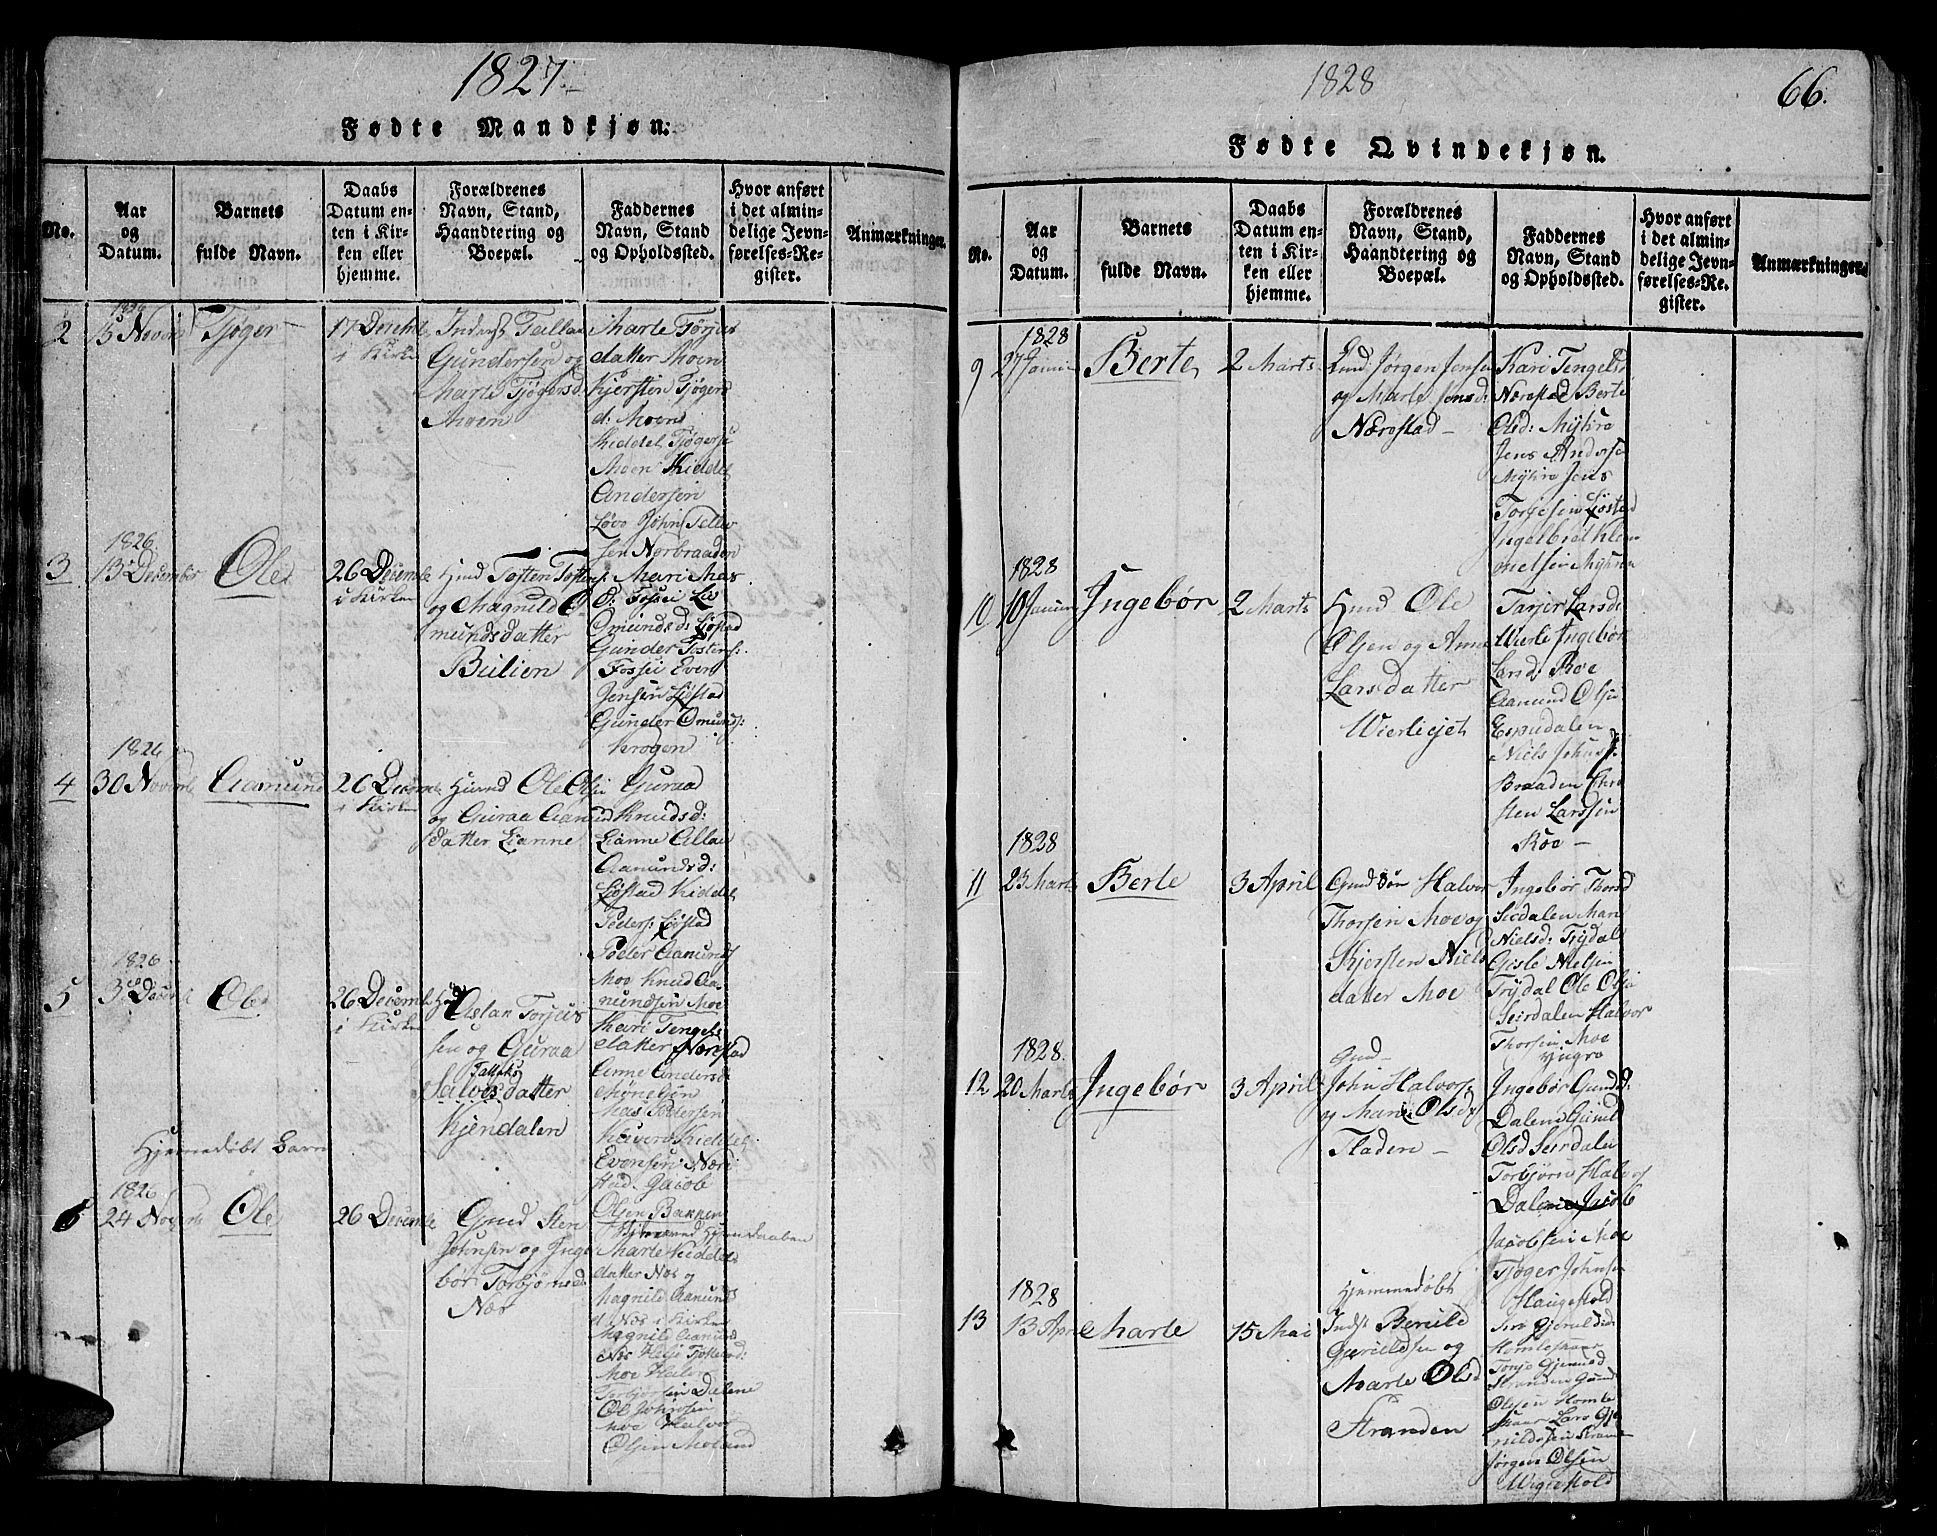 1827
Fødte Mandkjøn.
No.
Aar
og
Datum.
Barnets
fulde Navn.
Daabs
Datum en-
ten i Kir-
ken eller
hjemme.
Forældrenes
Navn, Stand,
Haandtering og
Boepæl.
Faddernes
Navn, Stand
og Opholdssted.
Hvor anført
i det almin-
delige Jevn-
førelses-Re-
gister.
Anmærkninger.
2
1826
5 Novbr
Tjøger
17 Decembr
i Kirken
Inderst Tallac
Gundersen og
Marte Tjøgersd
Moen
Marte Torjus
datter Moen
Kjersten Tjøgers
d: Moen
Kiddel Tjøgerse
Moen Kiddel
Andersen
Løvo John Tellev
sen Nerbraaden
3
1826
13 Decembr
Ole
26 Decembe
i Kirken
Huusmd Tosten Tostens:
og Magnild O
mundsdatter
Bulien
Mari Mas
d. Fossei Liv
Omundsd: Løstad
Gunder Tostens:
Fossei Even
Jensen Løstad
Gunder Omunds:
Krogen
4
1826
30 Novembr
Aamund
26 Decembr
i Kirken
Huusmd Ole Olsen
og Guraa Aamund
datter Lianne
Guraa
Knudsd:
Lianne Allac
Aamundsd:
Løstad Kiddel
Peders: Løstad
Peder Aamunds
Moe Knud Aa
mundsen Moe
5
1826
3 Decembr
Ole
26 Decembr
i Kirken
Aslan Torjus
sen og Guraa
Tallaks
Salves datter
Kjendalen
Kari Tengels
datter Nærestad
Anne Anders
Mas Pedersen
Kleveren Kiddel
Evensen Næri
stad. Jacob
Olsen Bakken
Hjemmedøbt Barn
6
1826
24 Novembr
Ole
26 Decembe
Gmd Sten
Johnsen og Inge
bør Torbjørnsd
Næs
ved Hjemmedaaben
Marte Kiddels
datter Næs og
Magnild Aamunds
d. Næs i Kirken
Magnild Aamunds
Næs Helje Tjøstelsd:
Moe Halvor
Torbjørsen Dalene
Ole Johnsen
Moe Halvor
Olsen Moland
1828
66.
Fødte Qvindekjøn.
No.
Aar
og
Datum.
Barnets
fulde Navn.
Daabs
Datum en-
ten i Kir-
ken eller
hjemme.
Forældrenes
Navn, Stand,
Haandtering og
Boepæl.
Faddernes
Navn, Stand
og Opholdssted.
Hvor anført
i det almin-
delige Jevn-
førelses-Re-
gister.
Anmærkninger.
9
1828
27 Januar
Berte
2 Marts
Jørgen Jensen
og Marte Jensd:
Nærestad
Kari Tengelsd
Nærestad Berte
Olsd: Myhre
Jens Anderse
Myhre Jens
Torjesen Løstad
Ingelbret Klem
metsen Myhren
10
1828
10 Januar
Ingebør
2 Marts
Huusmd Ole
Olsen og Anne
Larsdatter
Wierliejet
Tarjer Larsd:
Wierli Ingebør
Larsd: Roe
Aamund Olsen
Espedalen
Niels Johnsen
Braaden Chri
sten Larssen
Roe
11
1828
23 Marts
Berte
3 April
Gmdsøn Halvor
Thorsen Moe og
Kjersten Niels
datter Moe
Ingebør Thorsd
Seirdalen Mari
Nielsd: Trydal
Gisle Nielsen
Trydal Ole Olsen
Seirdalen Halvor
Thorsen Moe
yngre
12
1828
20 Marts
Ingebør
3 April
Gmd
John Halvors
og Mari Olsd:
Fladen
Ingebør Gunds:
Dalen Gunil
Olsd Seirdalen
Torbjørn Halvors
Dalene Jacob
Jacobsen Moe
Tjøger Johnsen
Haugehold
13
1828
13 April
Marte
15 Mai
Hjemmedøbt
Indst Berulf
Gjeruldsen og
Marte Olsd
Stranden
Siri Gjeruldsd:
Homleskaar
Tonje Gjeruld
Stranden Gund
Olsen Homle
skaar Lars Gje
ruldssen Strand
Jørgen Olsen
Wigeshold